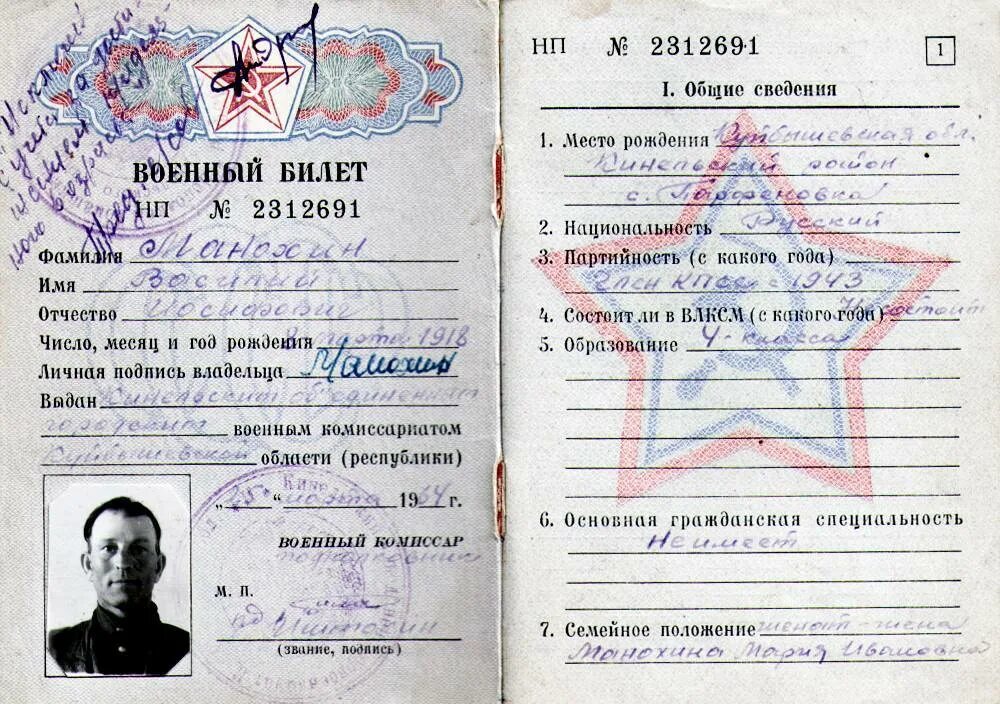 Исключен
с учета за дости-
жением предель-
ного возраста
ВОЕННЫЙ БИЛЕТ
НП № 2312691
Фамилия Манохин
Имя Василий
Отчество Иосифович
Число, месяц и год рождения 8 марта 1918
Личная подпись владельца Манохин
Выдан Кинельским объединенным
городским военным комиссариатом
Куйбышевской области (республики)
„25“ марта 1964 г.
ВОЕННЫЙ КОМИССАР
подполковник
М. П.
(звание, подпись)
НП № 2312691
1
I. Общие сведения
1. Место рождения Куйбышевская обл.
Кинельский район
с. Парфеновка
2. Национальность Русский
3. Партийность (с какого года)
Член КПСС с 1943
4. Состоит ли в ВЛКСМ (с какого года) Не состоит
5. Образование 4 класса
6. Основная гражданская специальность
Не имеет
7. Семейное положение женат - жена
Манохина Мария Ивановна